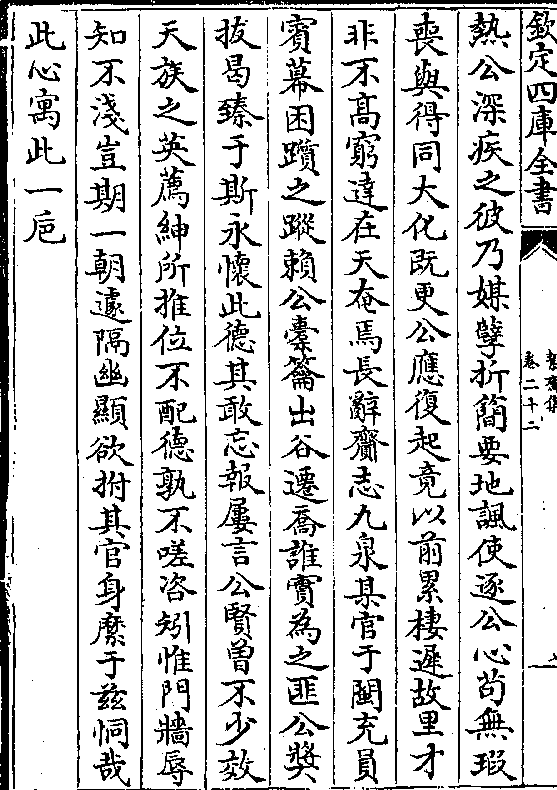 欽定四庫全書
卷二十二
熱公深疾之彼乃媒孽折簡要地諷使逐公心茍無瑕
喪與得同大化既更公應復起竟以前累棲遲故里才
非不髙窮達在天奄焉長辭齎志九泉某官于閩充員
賓幕困躓之蹤賴公橐籥出谷遷喬誰實為之匪公奬
拔曷臻于斯永懷此德其敢忘報屢言公賢曾不少效
天族之英薦紳所推位不配德孰不嗟咨矧惟門牆辱
知不淺豈期一朝遽隔幽顯欲拊其官身縻于兹恫哉
此心寓此一巵